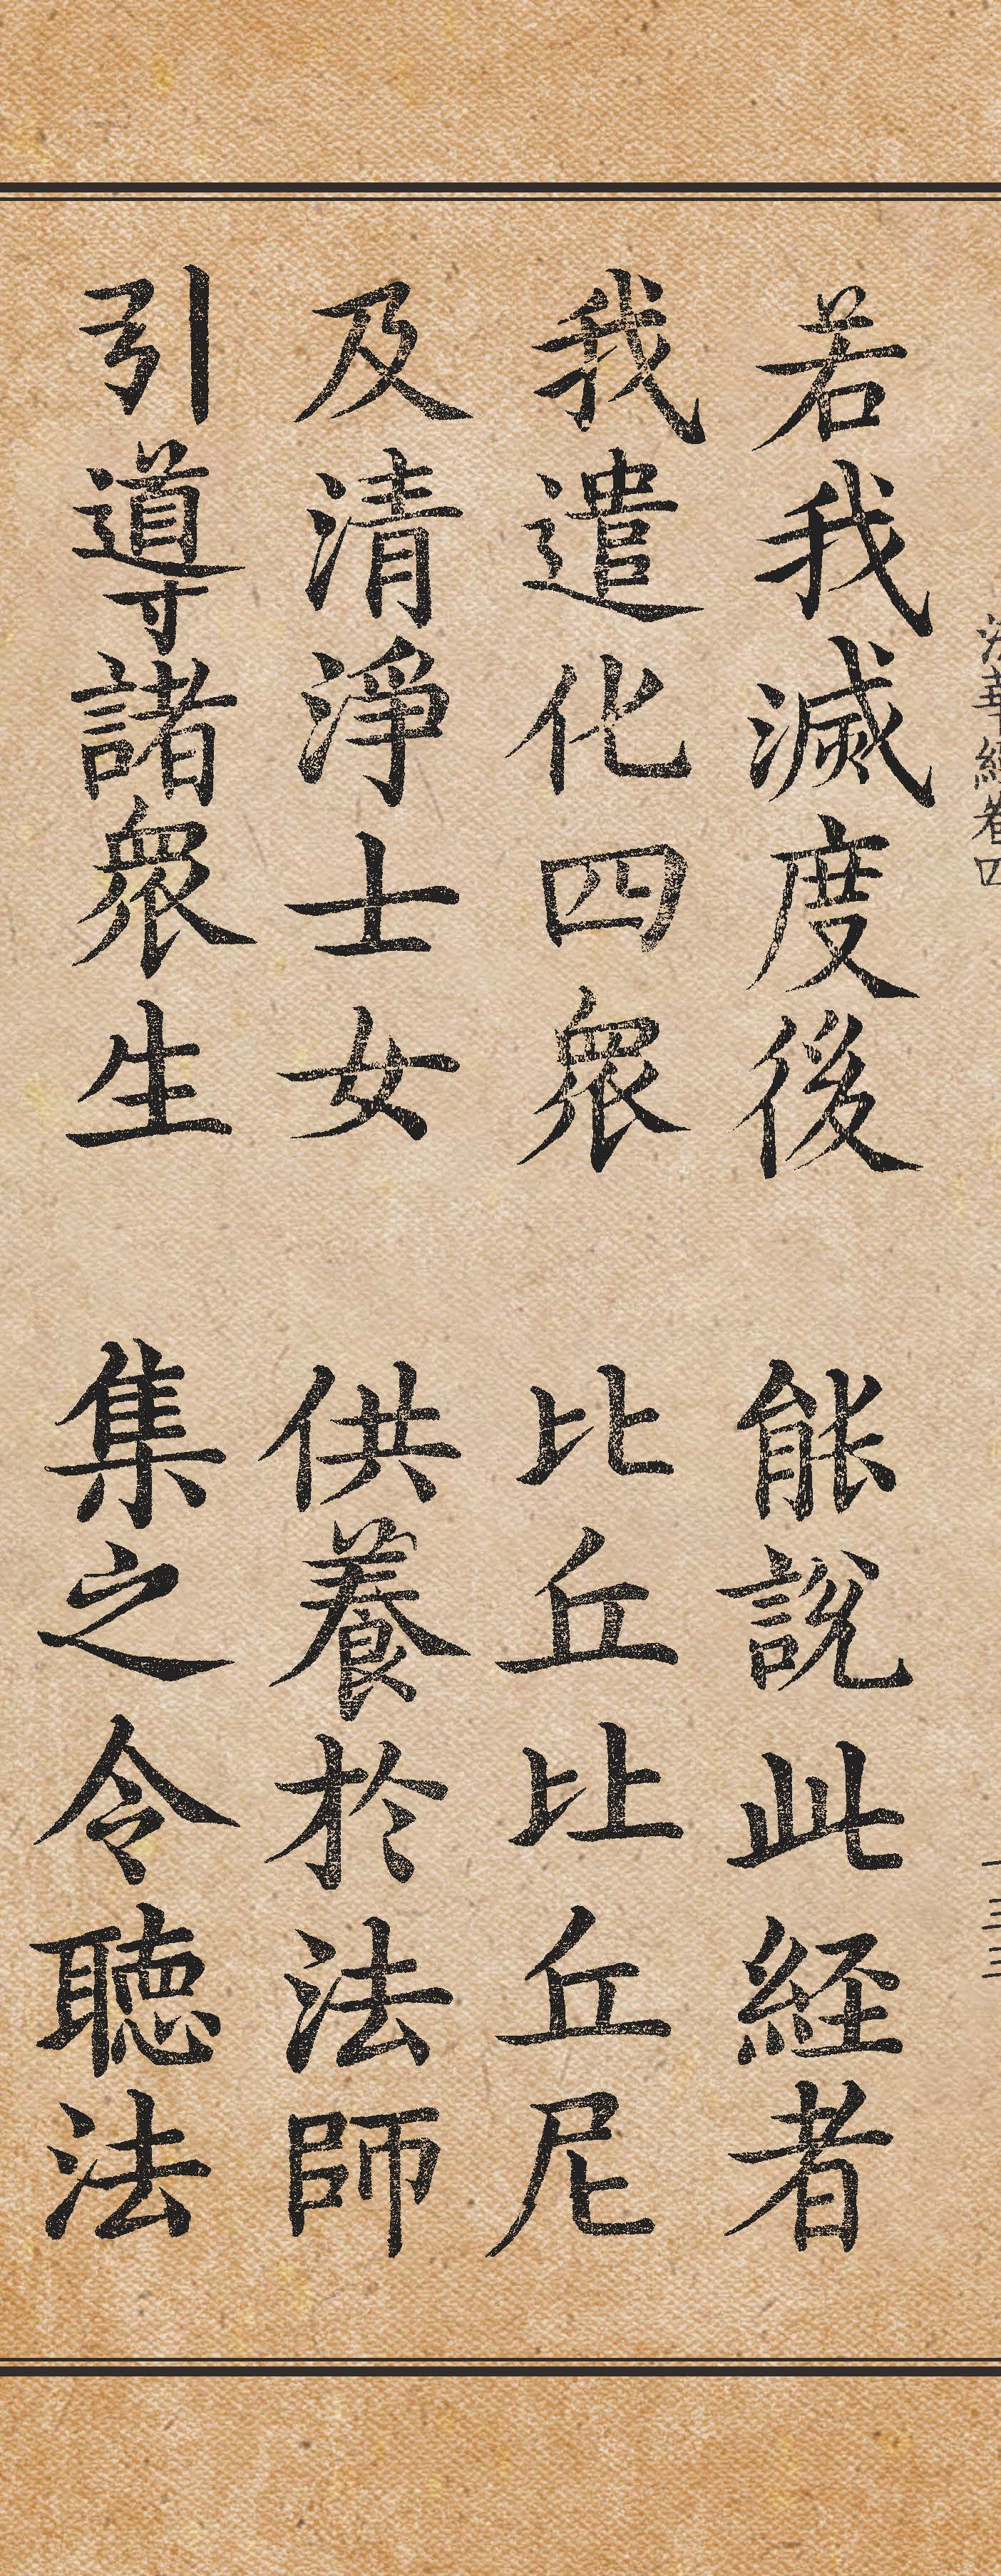 法華経巻四
一三三
若我滅度後 能説此経者
我遣化四衆 比丘比丘尼
及清淨士女 供養於法師
引導諸衆生 集之令聴法